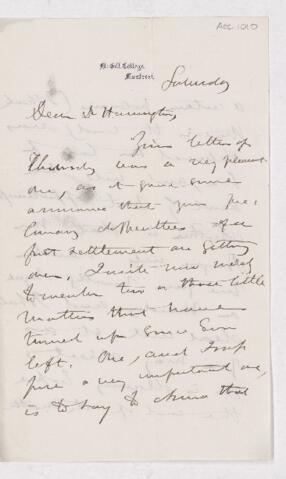 Acc 1010
McGill College,
Montreal.
Saturday
Dear Dr Harrington,
Your letter of
Thursday was a very pleasant
one, as it gave some
assurance that your pe-
cuniary difficulties of a
first settlement are getting
over. I write now merely
to mention two or three little
matters that have
turned up since Eva
left. One, and
a very important one,
is to say to Anna that